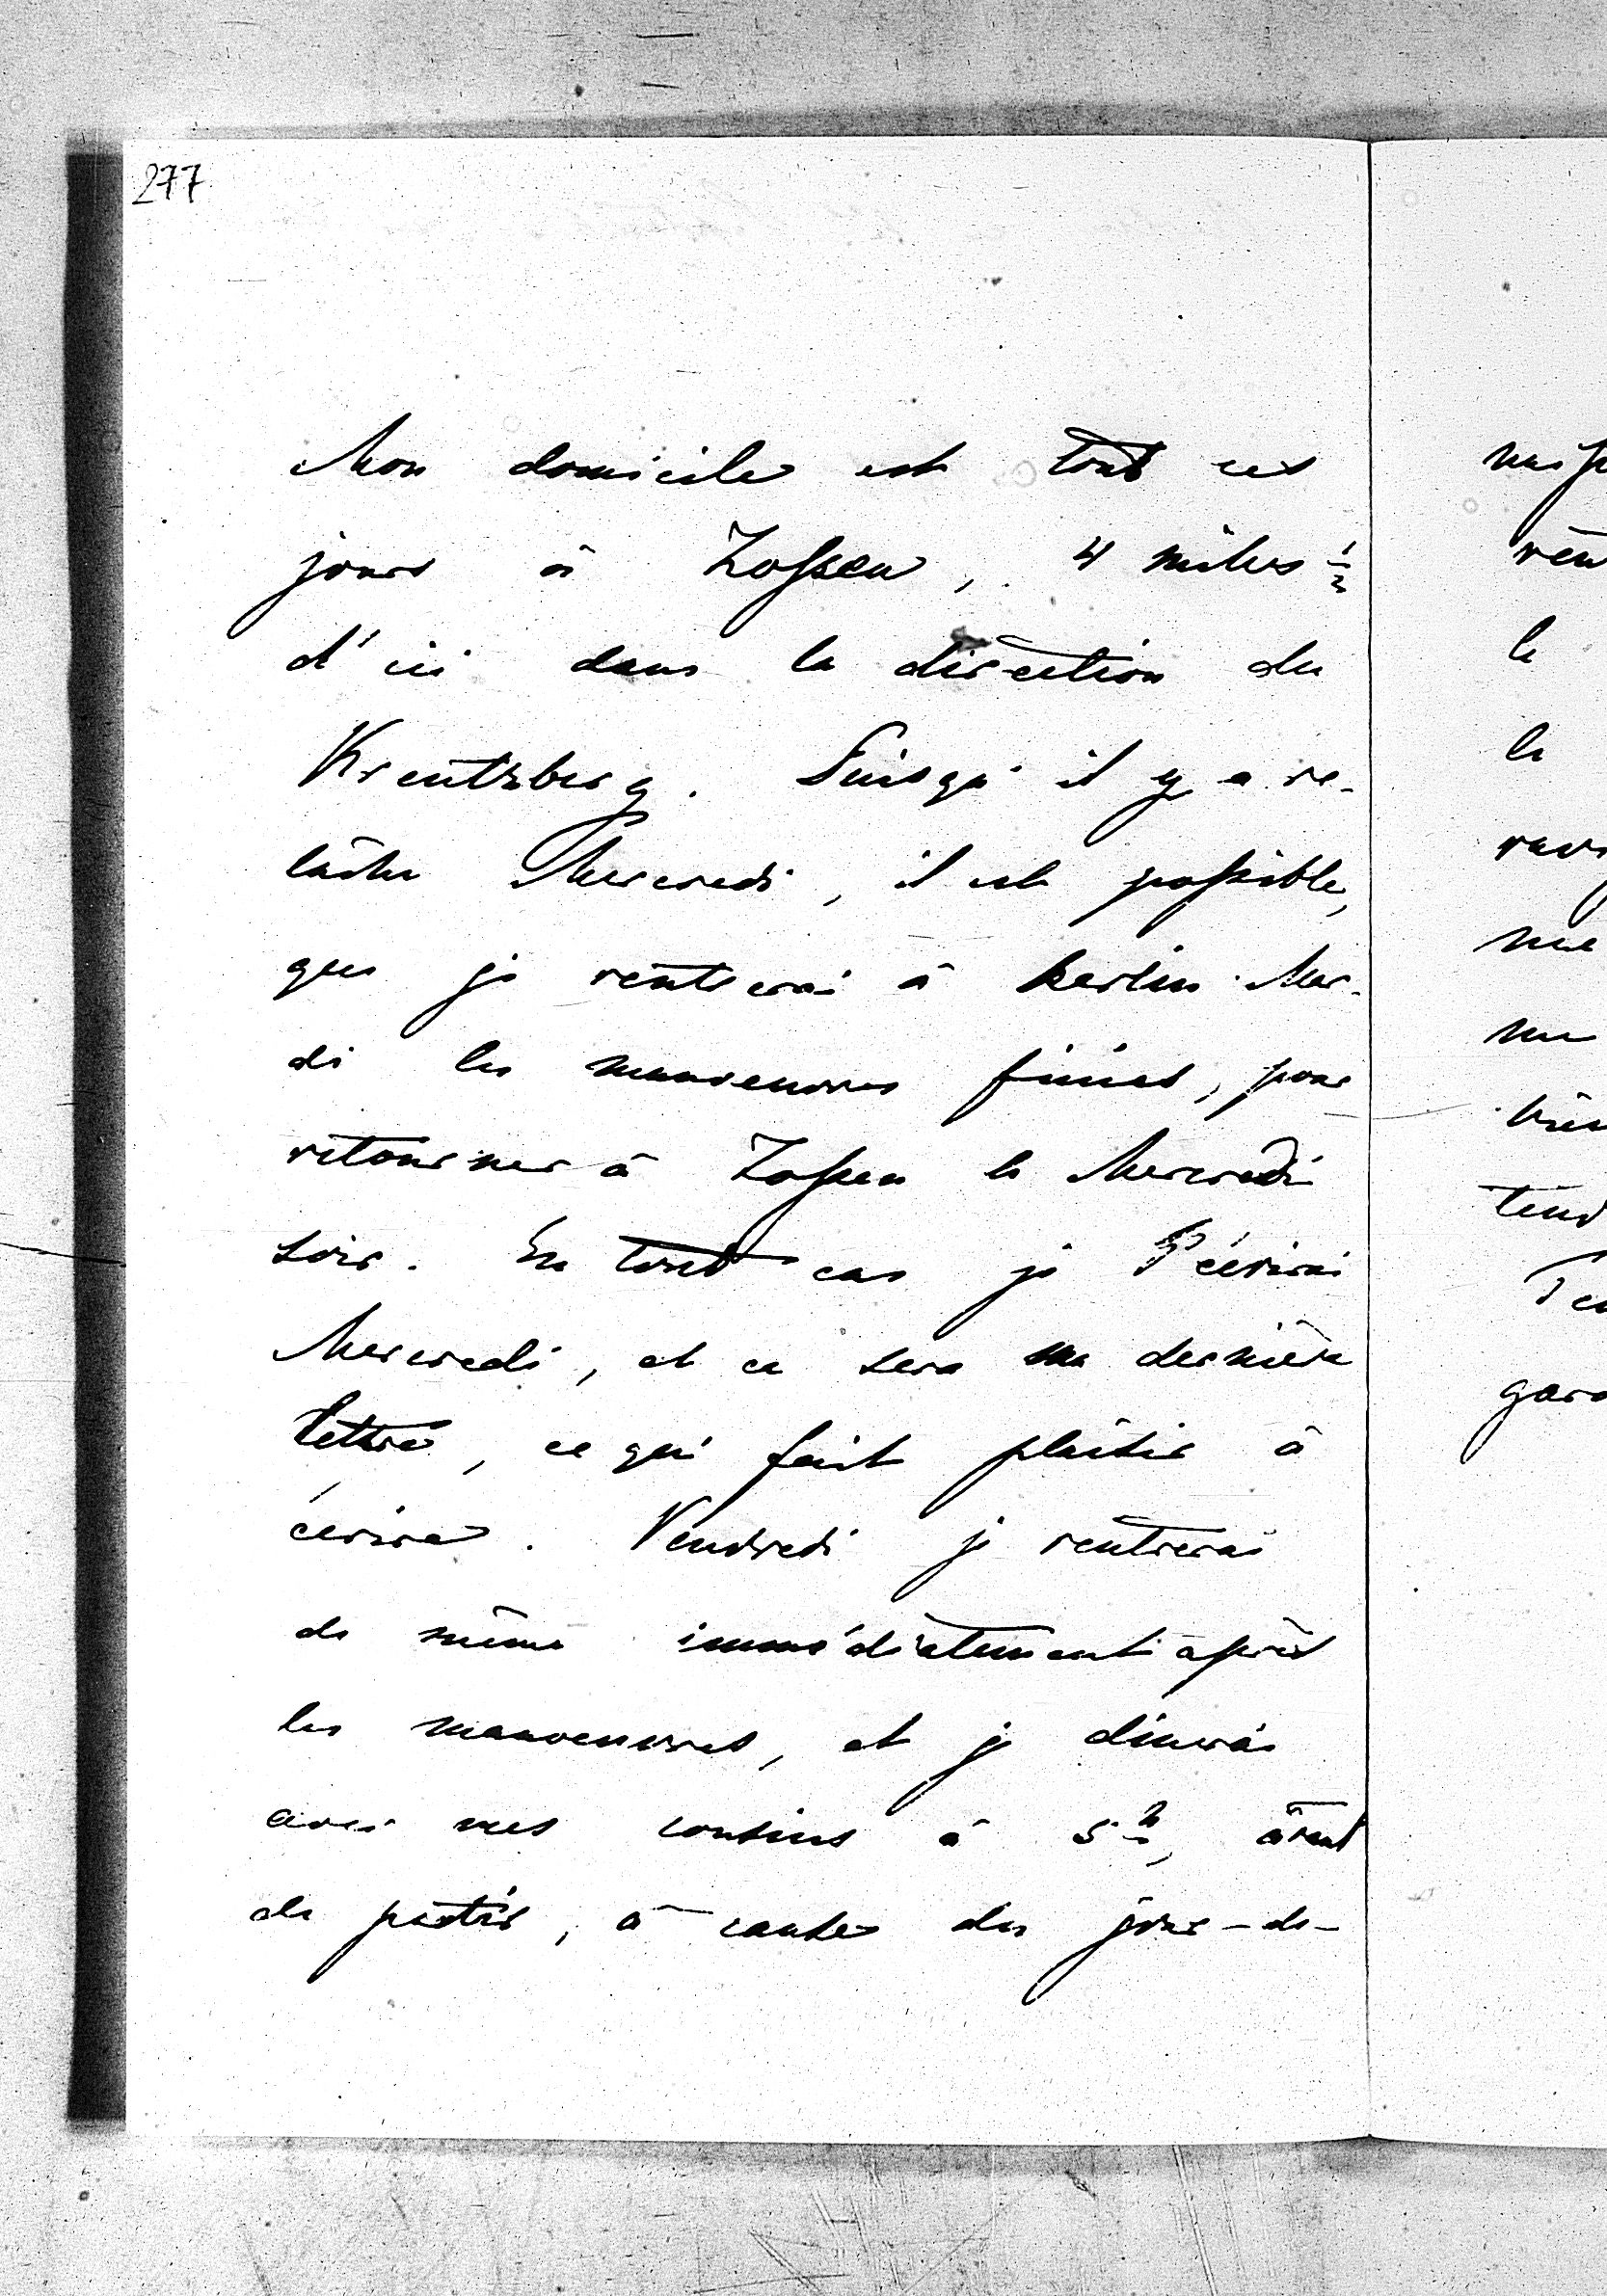 277
Mon domicile est tout ces
jours à Zossen, 4 milles ½
d'ici dans la direction du
Kreutzberg. Puisqu'il y a re-
lâche Mercredi, il est possible,
que je rentrerai à Berlin Mar-
di les manoeuvres finies, pour
retourner à Zossen le Mercredi
soir. En tout cas je T'écrirai
Mercredi, et ce sera ma dernière
lettre, ce qui fait plaisir à
écrire. Vendredi je rentrerai
de même immédiatement après
les manoeuvres, et je dinerai
avec mes cousins à 5 h, avant
de partir, à cause du jour-de-
le
la
me